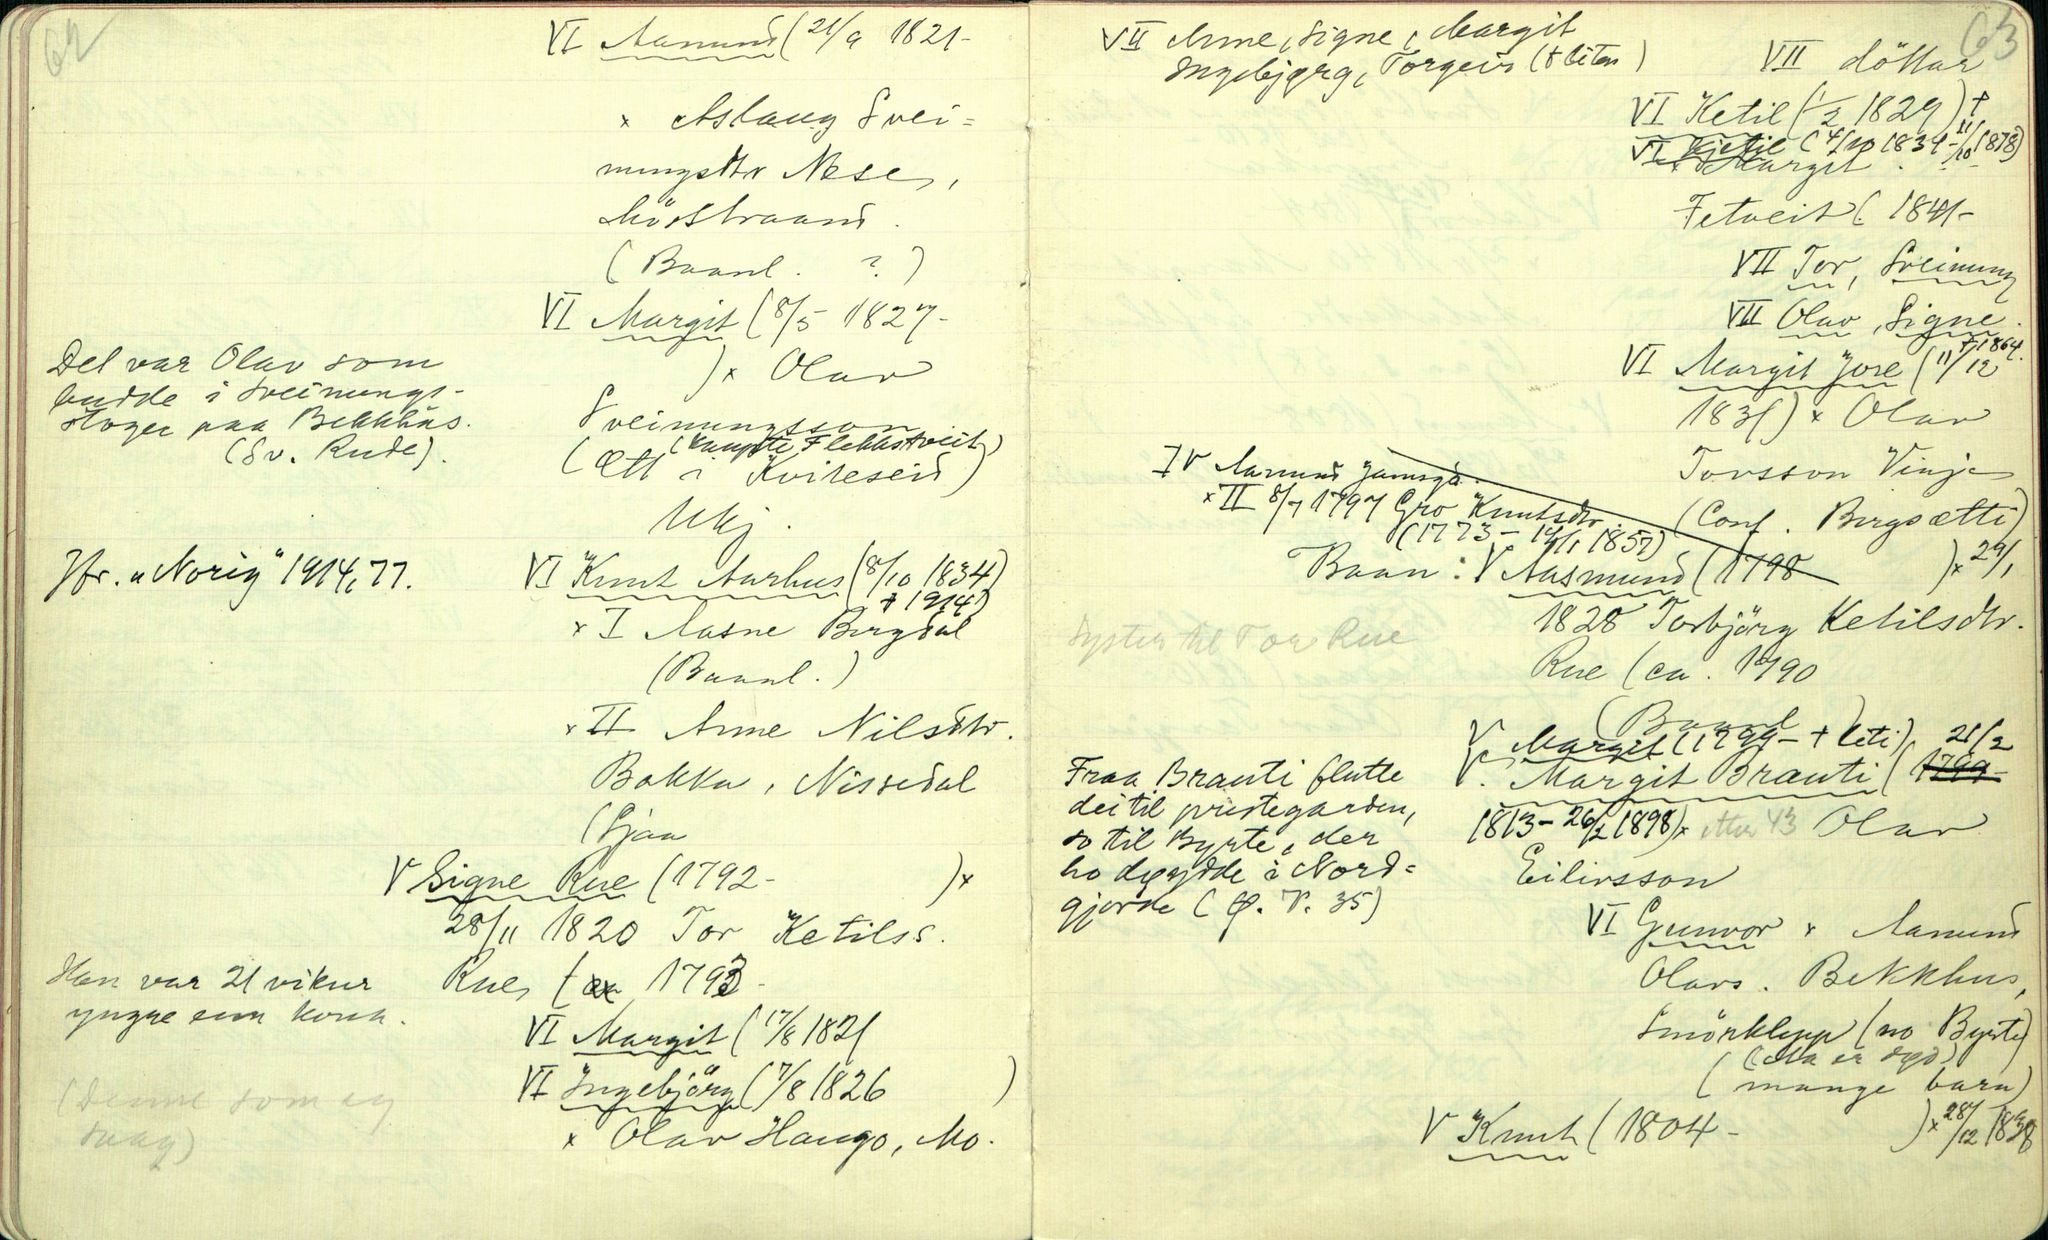 62
VI Aamund (21/9 1821-
x Aslaug Svei=
nungsdtr Nese,
Møsstraand.
(Baanl. ?)
VI Margit (8/5 1827-
)x Olav
Sveinungsson
(kaupte Flekkstveit)
(Ætt i Kviteseid)
Ukj.
Det var Olav som
budde i Sveinungs-
stoger paa Bekkhus.
(Sv. Rude).
Jfr. "Norig" 1914, 77.
VI Knut Aarhus (8/10 1834)
+ 1914)
x I Aasne Bergdal
(Baanl.)
x II Anne Nilsdtr.
Bakka, Nissedal
(Gjaa
V Signe Rue (1792- )x
28/11 1820 Tor Ketilss.
Rue, (ca 1793-
Han var 21 vikur
yngre enn kona.
VI Margit (17/8 1821
VI Ingebjörg (7/8 1826 )
x Olav Haugo, Mo.
(Denne som eg
saag)
63
VII Anne, Signe, Margit
Ingebjørg, Torgeir (+ liten)
VII döttar
VI Ketil (1/2 1829) +
VI Kjetil (4/10 1834-11/10 1878)
x Margit
Fetveit (1841-
VII Tor, Sveinung
VII Olav, Signe.
+ 1864.
VI Margit Jore (11/12
1831) x Olav
Torsson Vinje
(Conf. Bergsætti)
IV Aamund Jamsgd.
x II 8/7 1797 Gro Knutsdtr.
(1773- 1857)
Baan: V Aasmund (1798 )x 29/1
1828 Torbjörg Ketilsdtr.
Rue (ca. 1790
Syster til Tor Rue
(Baanl)
V Margit (1799- + liti)
21/2
V. Margit Brauti (1799-
1813- 26/2 1898)x etter 43 Olav
Eilivsson
Fraa Brauti flutte
dei til prestegarden,
so til Byrte, der
ho döydde i Nord=
gjorde (Ø. V. 35)
VI Gunvor x Aamund
Olavs. Bekkhus,
Smörklepp (no Byrte)
(Ho er död)
(mange barn)
V Knut (1804- )x 28/12 1838